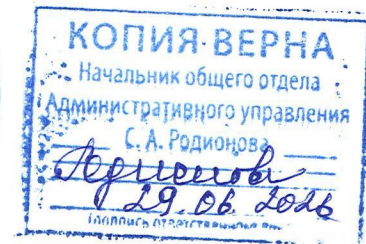 КОПИЯ ВЕРНА
Начальник общего отдела
Административного управления
С. А. Родионова
Родионова
29.06.2026